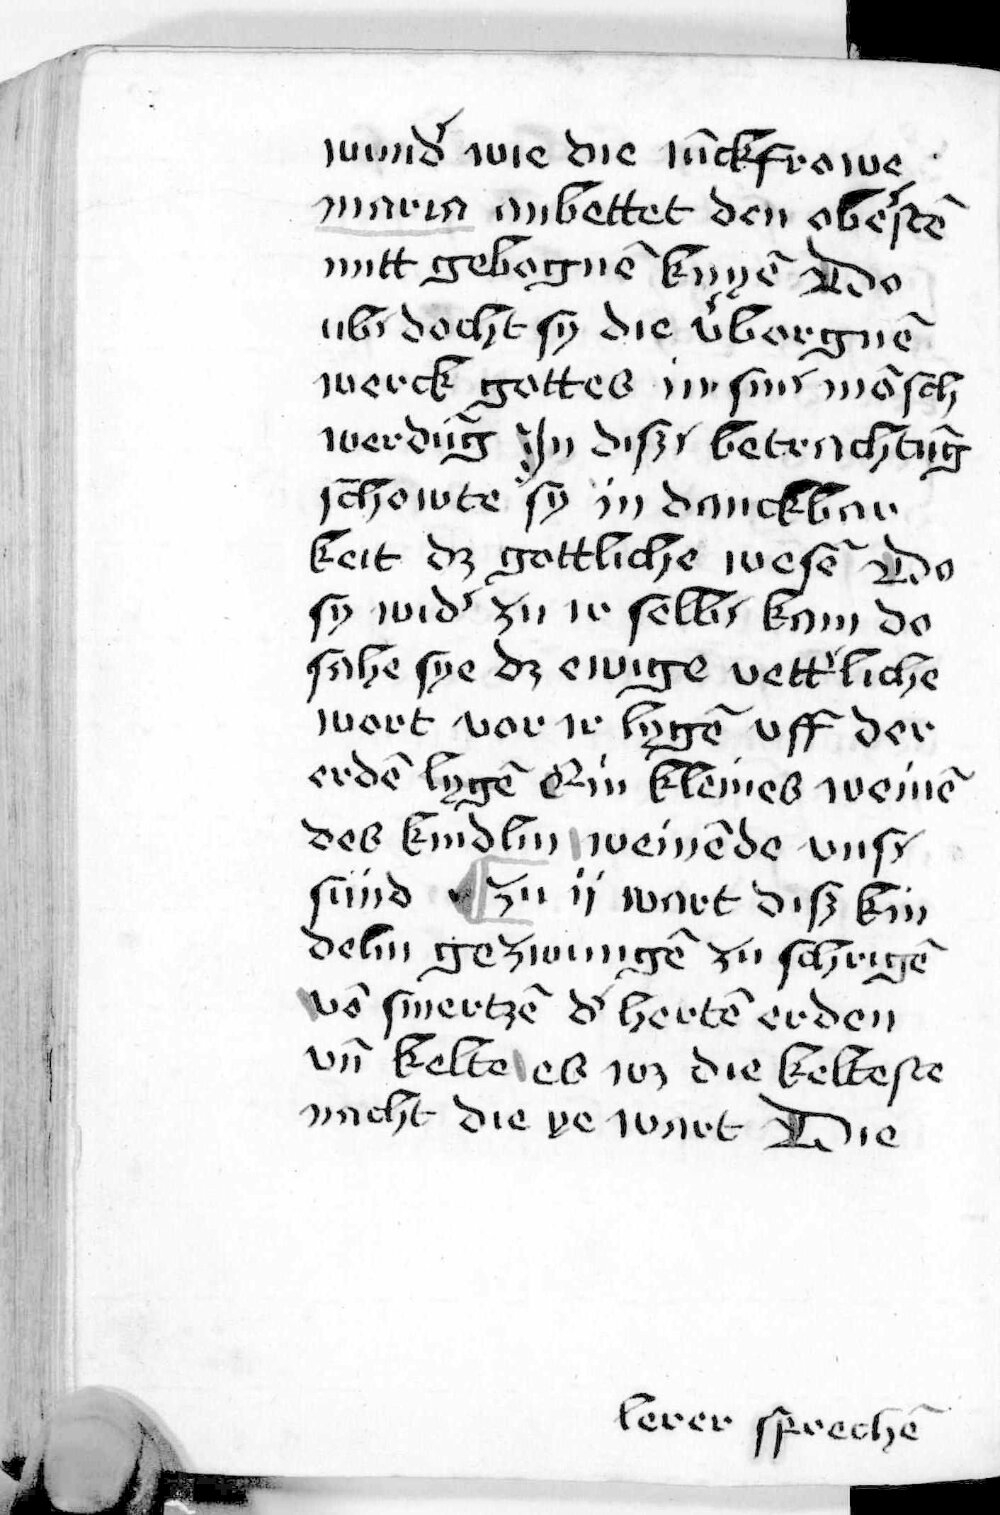 wundʾ wie die iūckfrowe
maria anbettet den obeʾstē
mitt gebognē knyē Do
ubʾ docht sy die vʾborgnē
werck gottes in sinʾ mēsch
werdūg Jn dißʾ betrachtūg
schowte sy in danckbar
keit dz gottliche wesē Do
sy widʾ zu ir selbʾ kam do
sahe sye dz ewige vettʾliche
wort vor ir lygē vff der
erdē lygē Ein kleines weinē
des kindlin weinēde vnsʾ
sünd zu ij wart diß kin
delin gezwungē zu schrigē
vō smertzē dʾ hertē erden
vn̄ kelte es wz die kelteste
nacht die ye wart Die
lerer sprechē